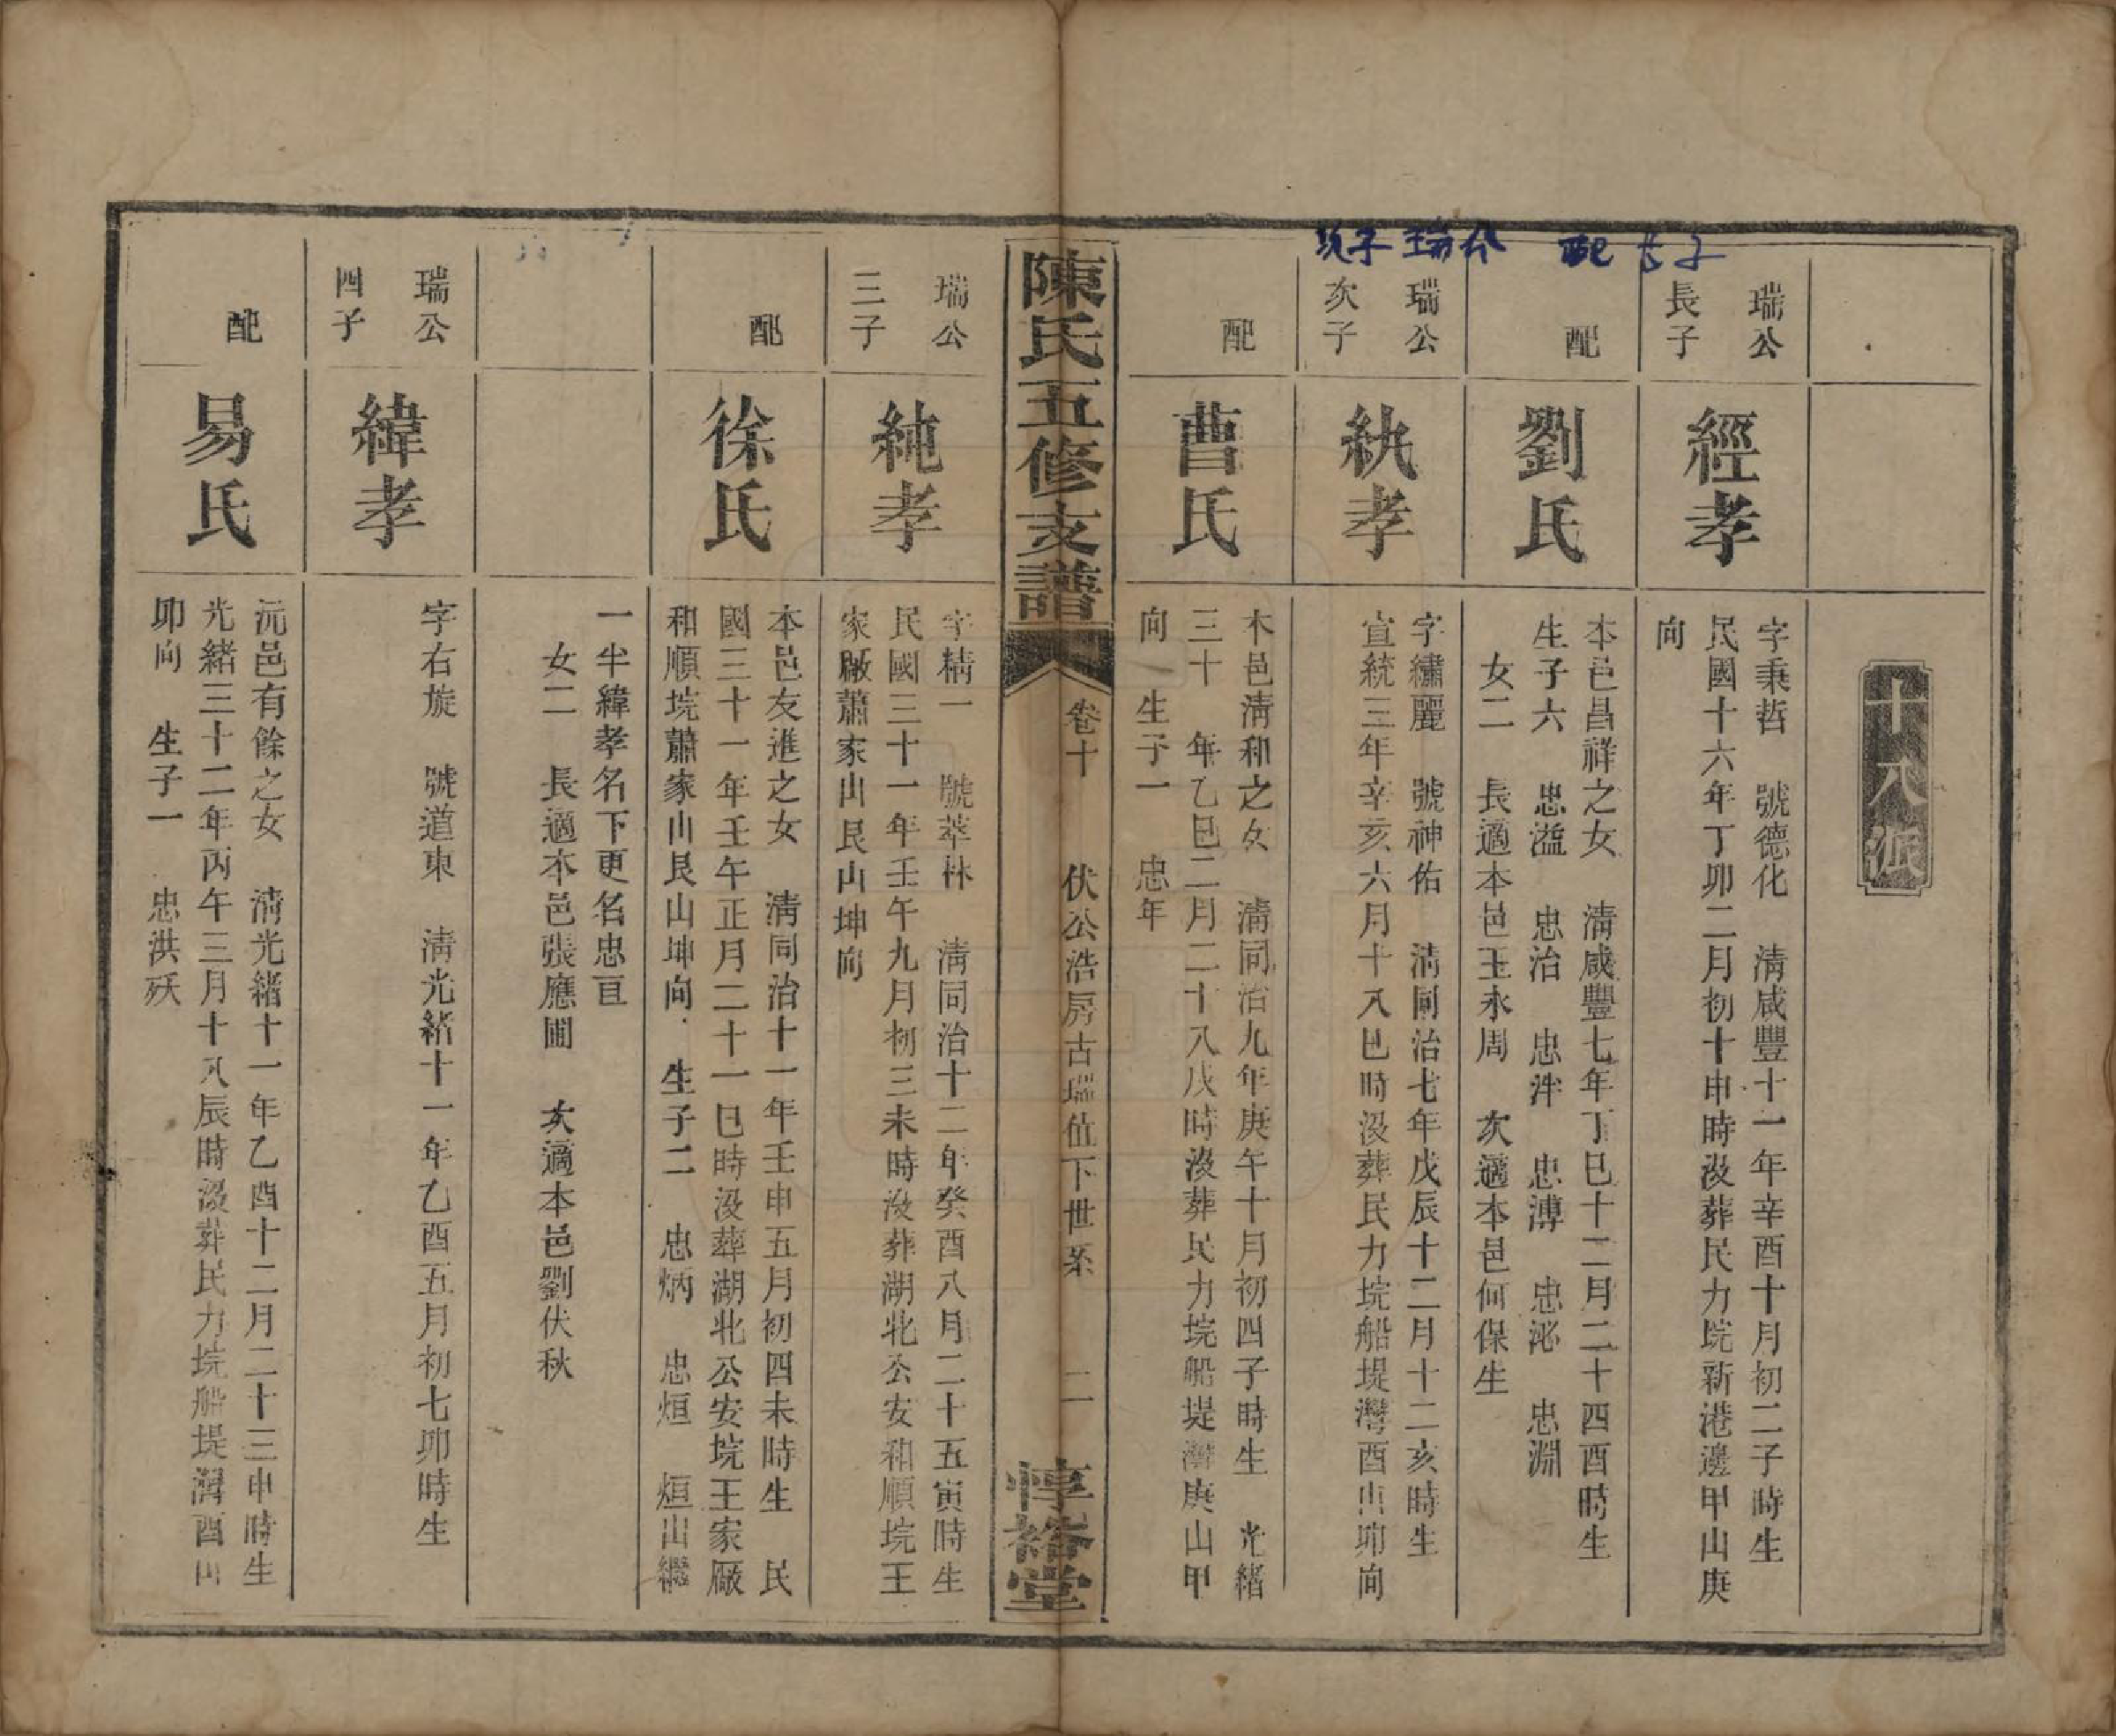 十八派
瑞公
長子
經孝
字秉哲　號德化　淸咸豐十一年辛酉十月初二子時生
民國十六年丁卯二月初十申時沒葬民力垸新港邊甲山庚
向
配
劉氏
本邑昌祥之女　淸咸豐七年丁巳十二月二十四酉時生
生子六　忠溢　忠治　忠泮　忠溥　忠泌　忠淵
女二　長適本邑王永周　次適本邑何保生
瑞公
次子
紈孝
字繡麗　號神佑　淸同治七年戊辰十二月十二亥時生
宣統三年辛亥六月十八巳時沒葬民力垸船堤灣酉山卯向
配
曹氏
本邑淸和之女　淸同治九年庚午十月初四子時生　光緒
三十　年乙巳二月二十八戌時沒葬民力垸船堤灣庚山甲
向　生子一　忠年
陳氏五修支譜
卷十
伏公浩房古瑞值下世系
二
惇裕堂
瑞公
三子
純孝
字精一　號萃林　淸同治十二年癸酉八月二十五寅時生
民國三十一年壬午九月初三未時沒葬湖北公安和順垸王
家厰蕭家山艮山坤向
配
徐氏
本邑友進之女　淸同治十一年壬申五月初四未時生　民
國三十一年壬午正月二十一巳時沒葬湖北公安垸王家厰
和順垸蕭家山艮山坤向　生子二　忠炳　忠烜　烜出繼
一半緯孝名下更名忠亘
女二　長適本邑張應圃　次適本邑劉伏秋
瑞公
四子
緯孝
字右旋　號道東　淸光緒十一年乙酉五月初七卯時生
配
易氏
沅邑有餘之女　淸光緒十一年乙酉十二月二十三申時生
光緒三十二年丙午三月十八辰時沒葬民力垸船堤灣酉山
卯向　生子一　忠洪殀
次子 瑞公　配 長子